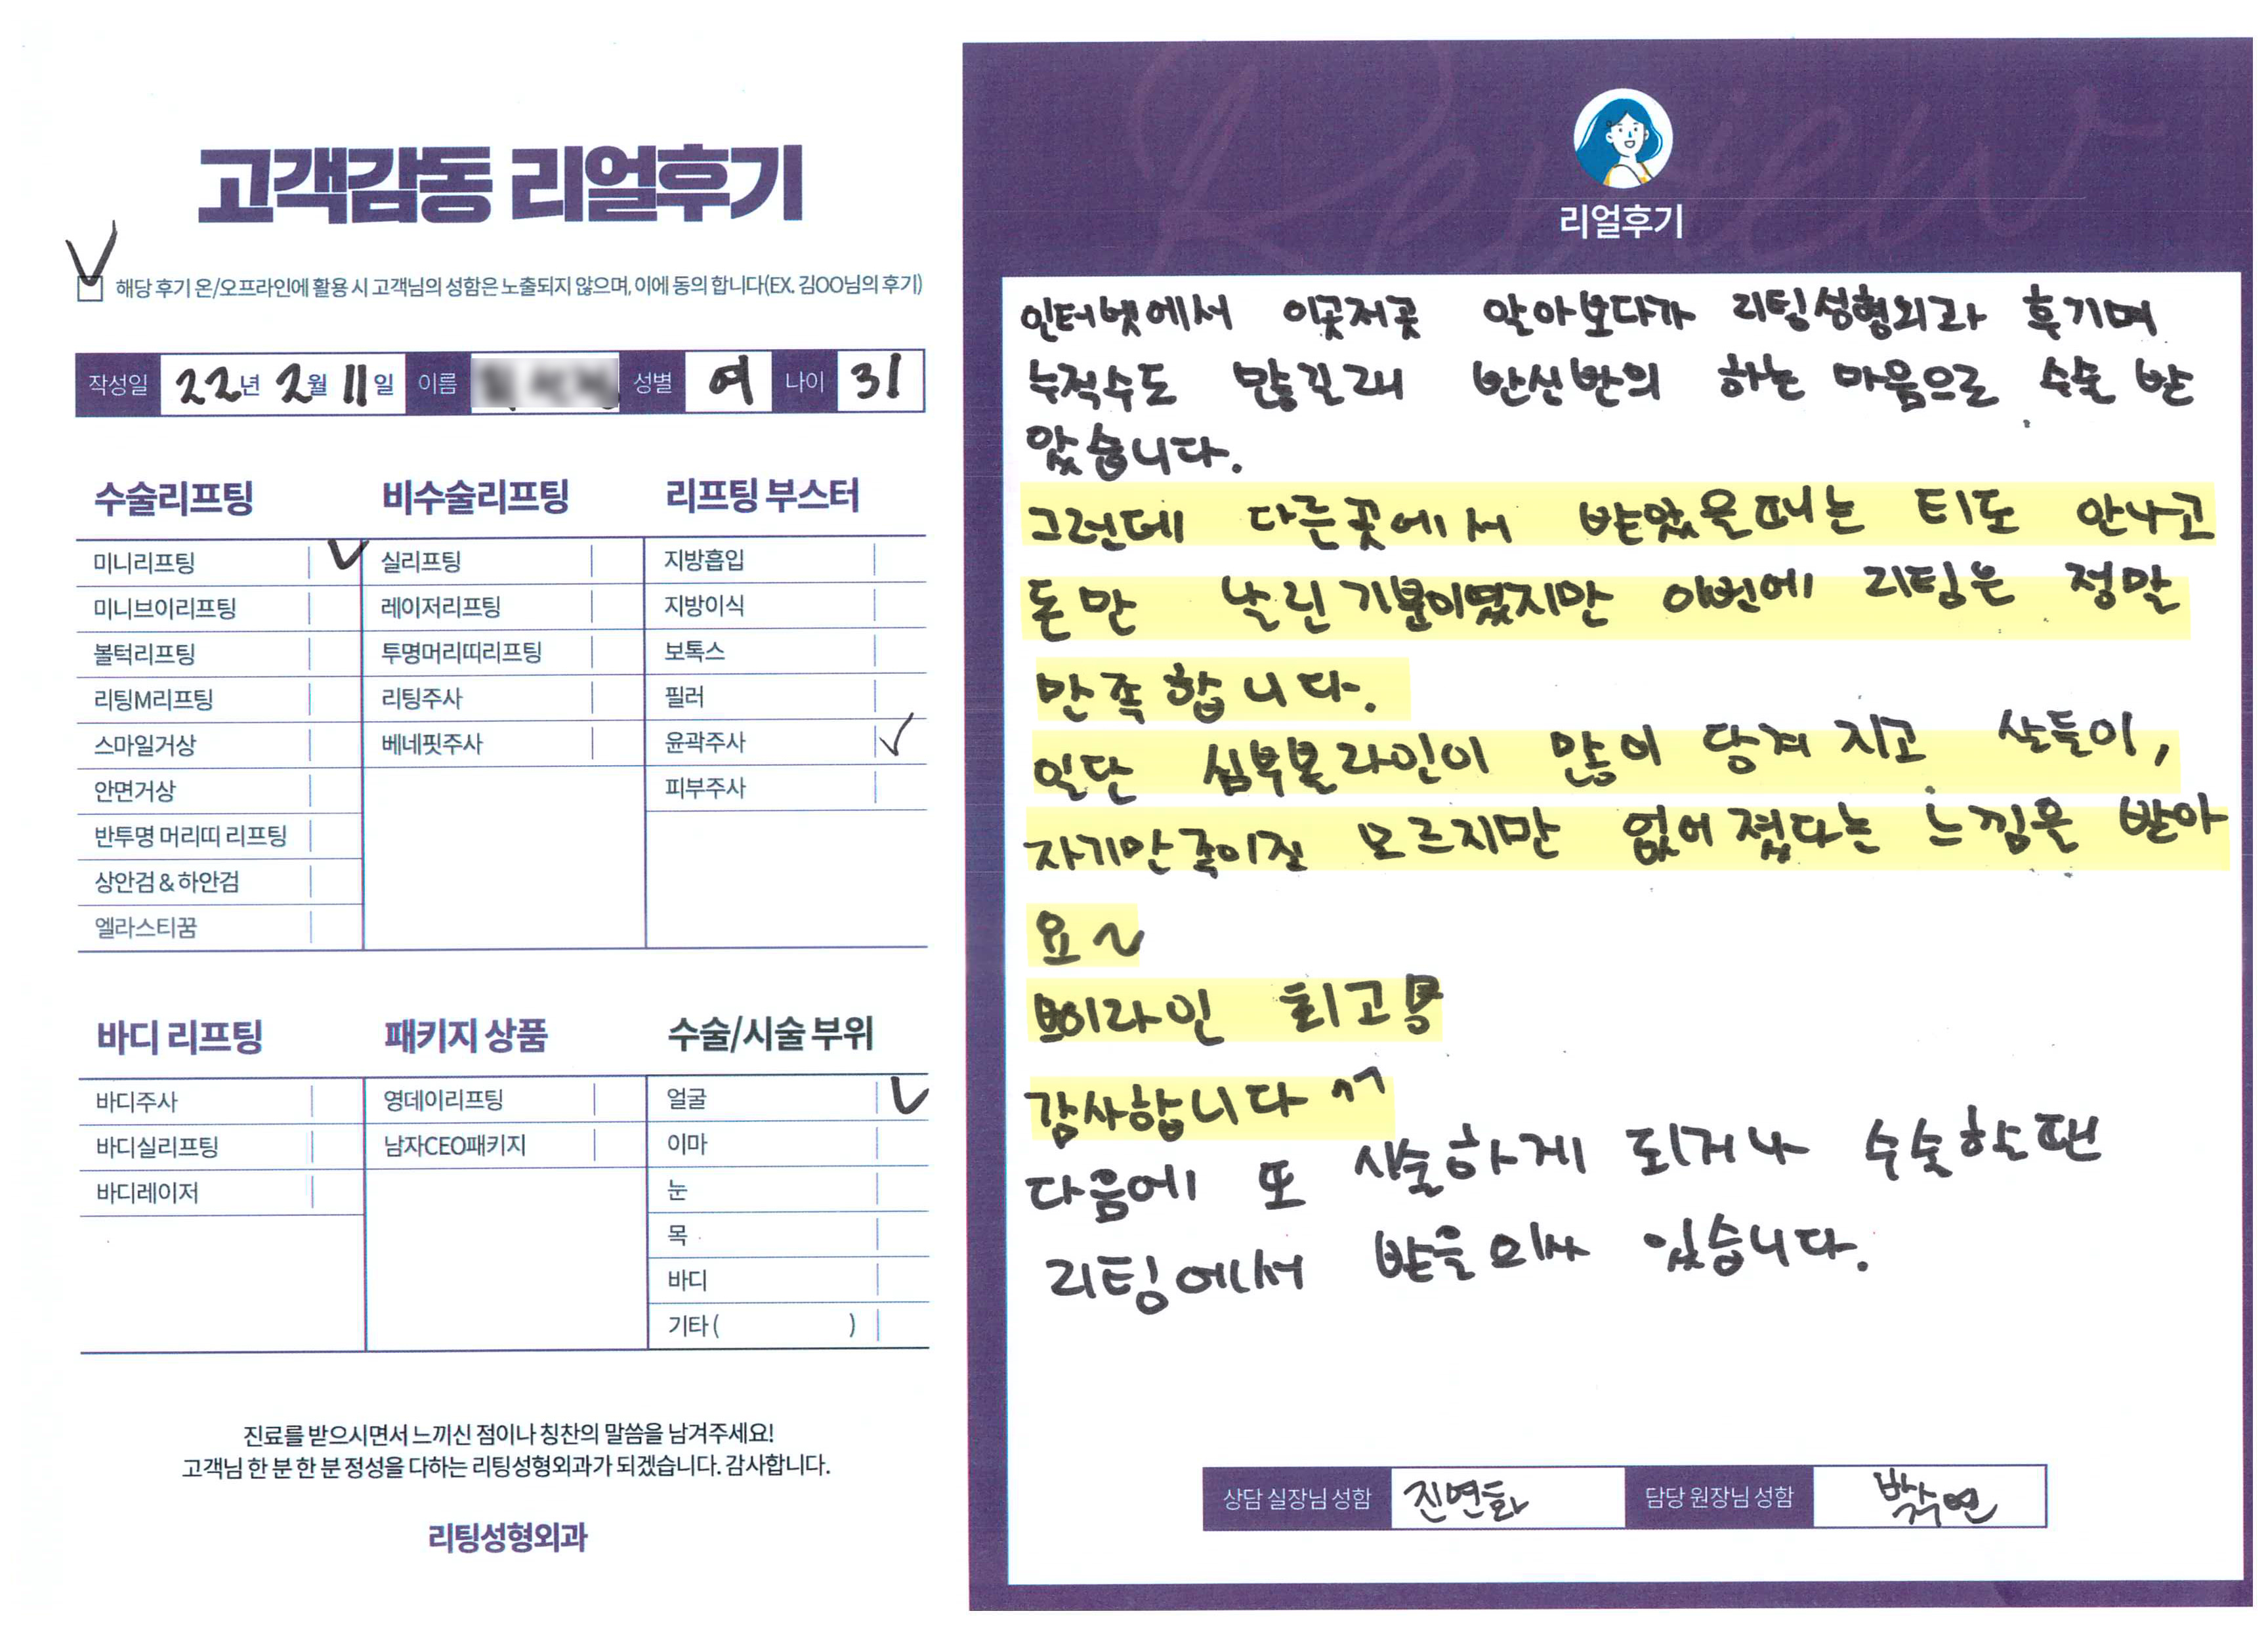 고객감동 리얼후기
해당 후기 온/오프라인에 활용 시 고객님의 성함은 노출되지 않으며, 이에 동의 합니다(EX. 김OO님의 후기)
작성일 22년 2월 11일 이름 성별 여 나이 31
수술리프팅
미니리프팅
미니브이리프팅
볼턱리프팅
리팅M리프팅
스마일거상
안면거상
반투명 머리띠 리프팅
상안검 & 하안검
엘라스티꿈
비수술리프팅
실리프팅
레이저리프팅
투명머리띠리프팅
리팅주사
베네핏주사
리프팅 부스터
지방흡입
지방이식
보톡스
필러
윤곽주사
피부주사
바디 리프팅
바디주사
바디실리프팅
바디레이저
패키지 상품
영데이리프팅
남자CEO패키지
수술/시술 부위
얼굴
이마
눈
목
바디
기타 ( )
진료를 받으시면서 느끼신 점이나 칭찬의 말씀을 남겨주세요!
고객님 한 분 한 분 정성을 다하는 리팅성형외과가 되겠습니다. 감사합니다.
리팅성형외과
Review
리얼후기
인터넷에서 이곳저곳 알아보다가 리팅성형외과 후기며
누적수도 많길래 반신반의 하는 마음으로 수술 받
았습니다.
그런데 다른곳에서 받았을때는 티도 안나고
돈만 날린기분이였지만 이번에 리팅은 정말
만족합니다.
일단 심부볼라인이 많이 당겨지고 살들이,
자기만족이질 모르지만 없어졌다는 느낌을 받아
요~
브이라인 최고
감사합니다 ^^
다음에 또 시술하게 되거나 수술할땐
리팅에서 받을의사 있습니다.
상담 실장님 성함 진연화 담당 원장님 성함 박수연